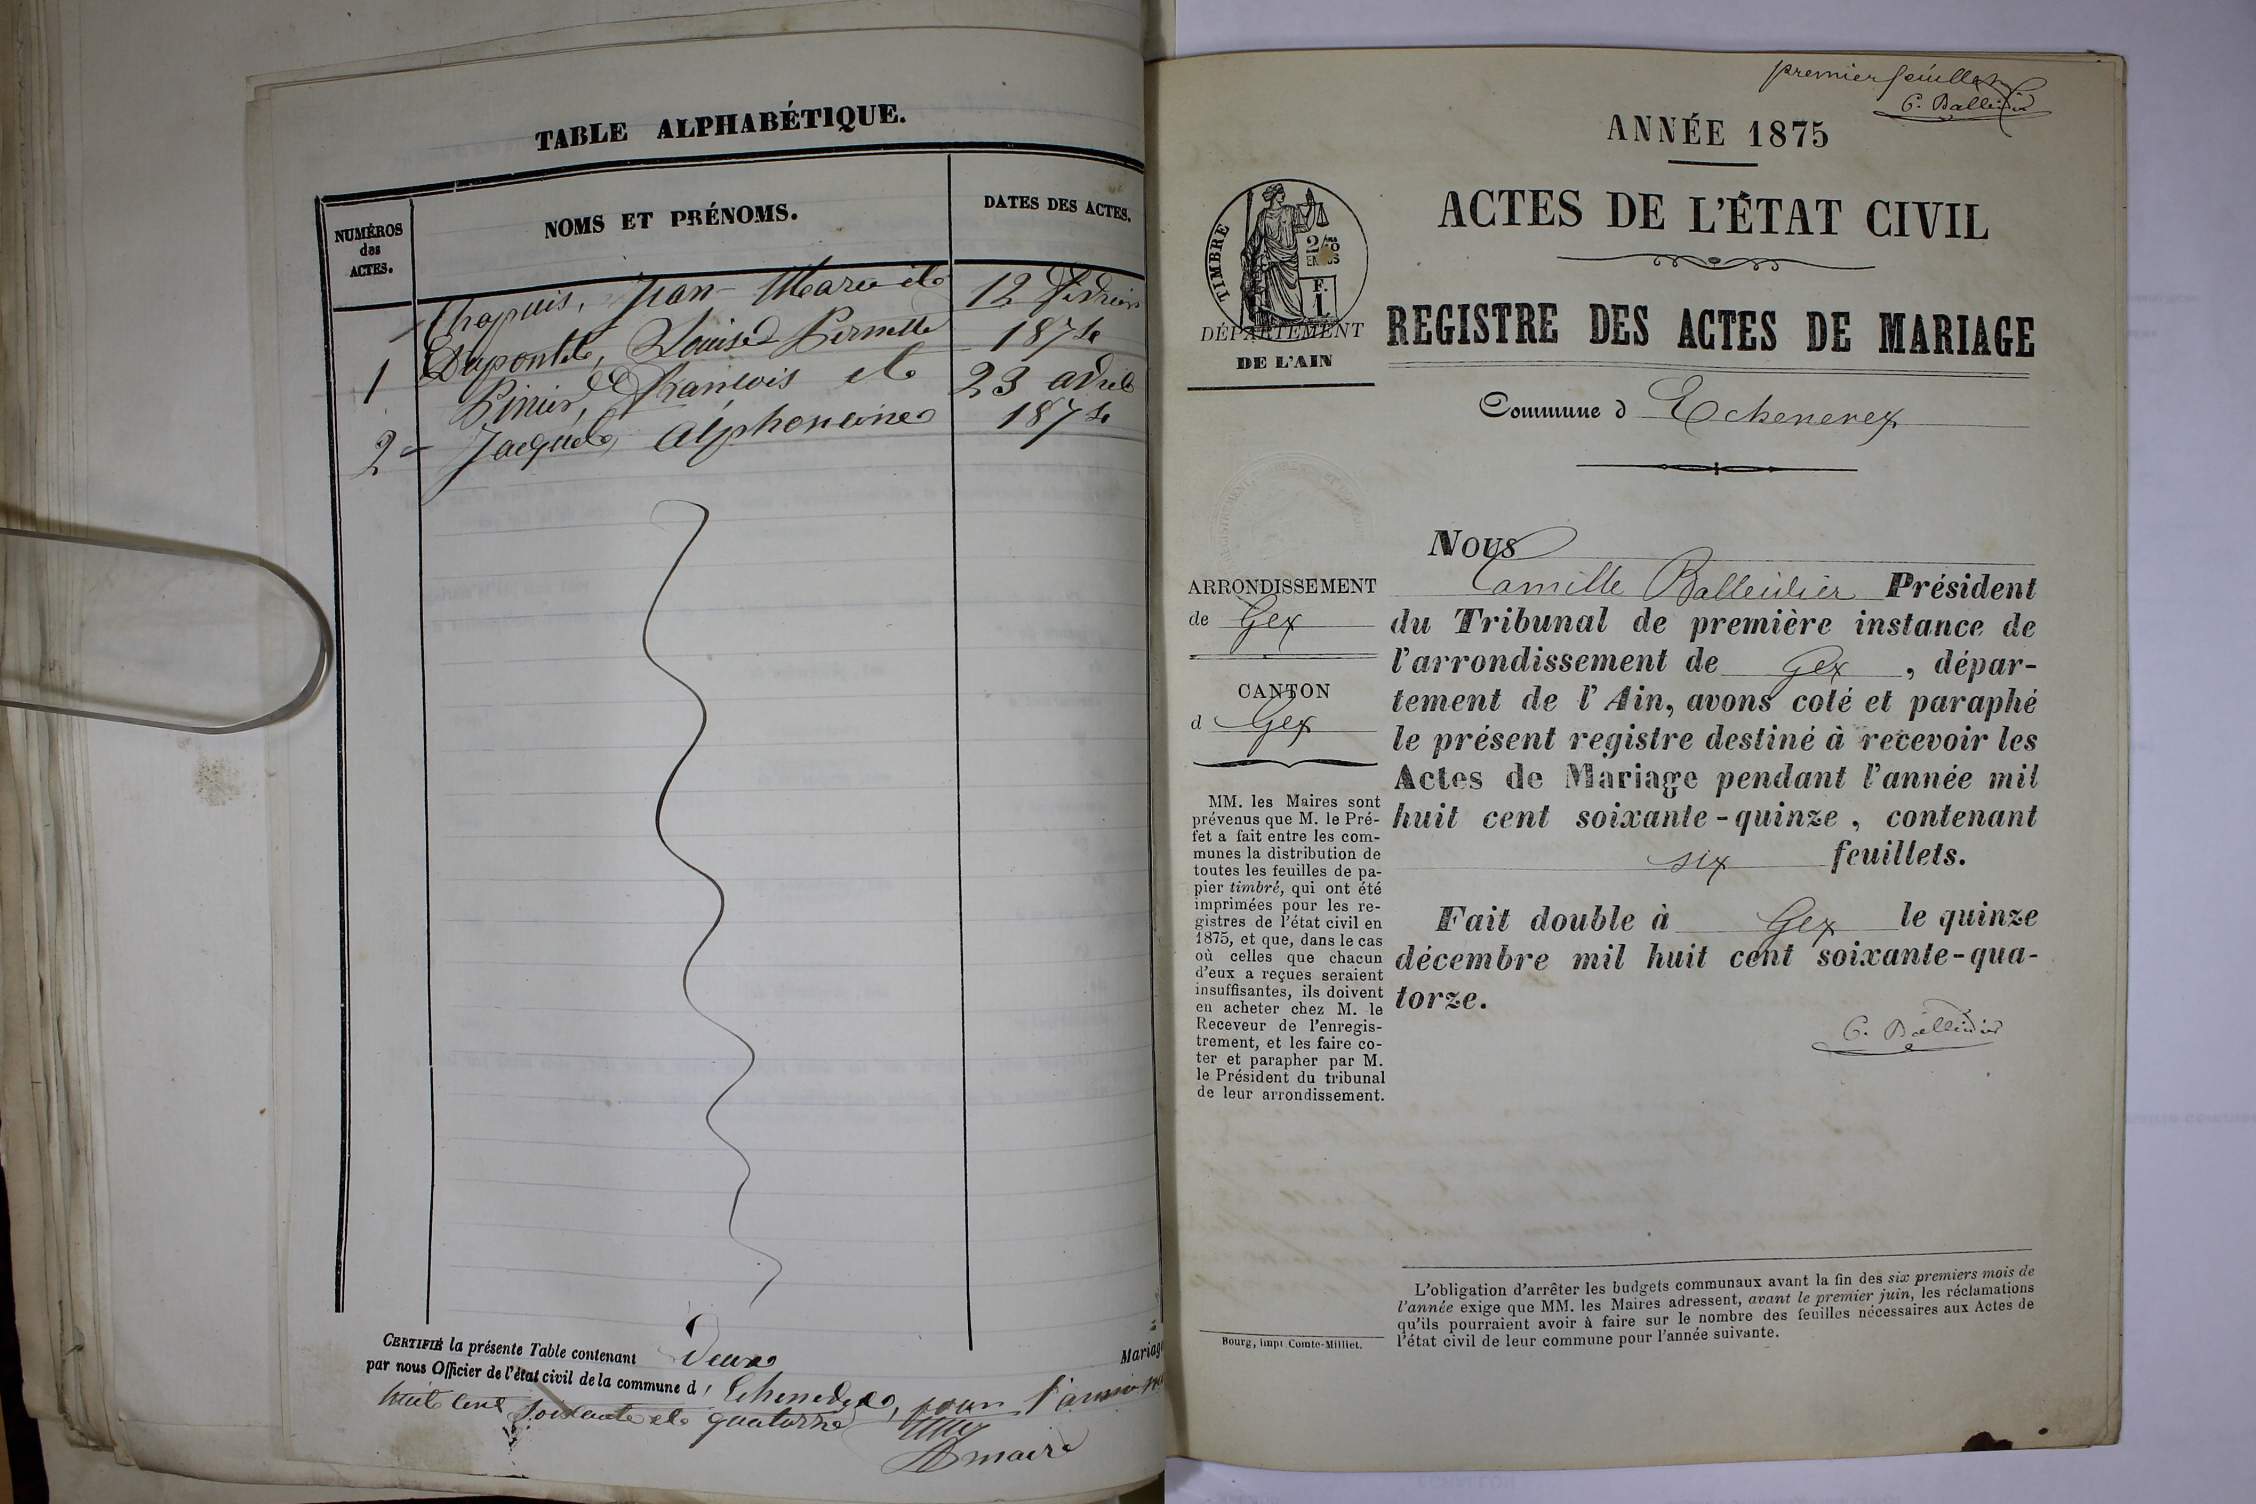 TABLE ALPHABÉTIQUE.
NUMÉROS
des
ACTES.
NOMS ET PRÉNOMS.
DATES DES ACTES.
Chapuis, Jean-Marie et 12 février
1 Dupont, Louise Pernette 1874
François et 23 avril
2 Alphonsine 1874
CERTIFIÉ la présente Table contenant deux Mariage
par nous Officier de l'état civil de la commune d'Echenevex, pour l'année mil
huit cent soixante et quatorze
maire
premier feuillet
C. Balleidier
ANNÉE 1875
ACTES DE L'ÉTAT CIVIL
TIMBRE
DÉPARTEMENT
DE L'AIN
REGISTRE DES ACTES DE MARIAGE
Commune d Echenevex
ARRONDISSEMENT
de Gex
CANTON
d Gex
MM. les Maires sont
prévenus que M. le Pré-
fet a fait entre les com-
munes la distribution de
toutes les feuilles de pa-
pier timbré, qui ont été
imprimées pour les re-
gistres de l'état civil en
1875, et que, dans le cas
où celles que chacun
d'eux a reçues seraient
insuffisantes, ils doivent
en acheter chez M. le
Receveur de l'enregis-
trement, et les faire co-
ter et parapher par M.
le Président du tribunal
de leur arrondissement.
Bourg, impr Comte-Milliet.
Nous
Camille Balleidier Président
du Tribunal de première instance de
l'arrondissement de Gex, dépar-
tement de l'Ain, avons coté et paraphé
le présent registre destiné à recevoir les
Actes de Mariage pendant l'année mil
huit cent soixante-quinze, contenant
six feuillets.
Fait double à Gex le quinze
décembre mil huit cent soixante-qua-
torze.
C. Balleidier
L'obligation d'arrêter les budgets communaux avant la fin des six premiers mois de
l'année exige que MM. les Maires adressent, avant le premier juin, les réclamations
qu'ils pourraient avoir à faire sur le nombre des feuilles nécessaires aux Actes de
l'état civil de leur commune pour l'année suivante.